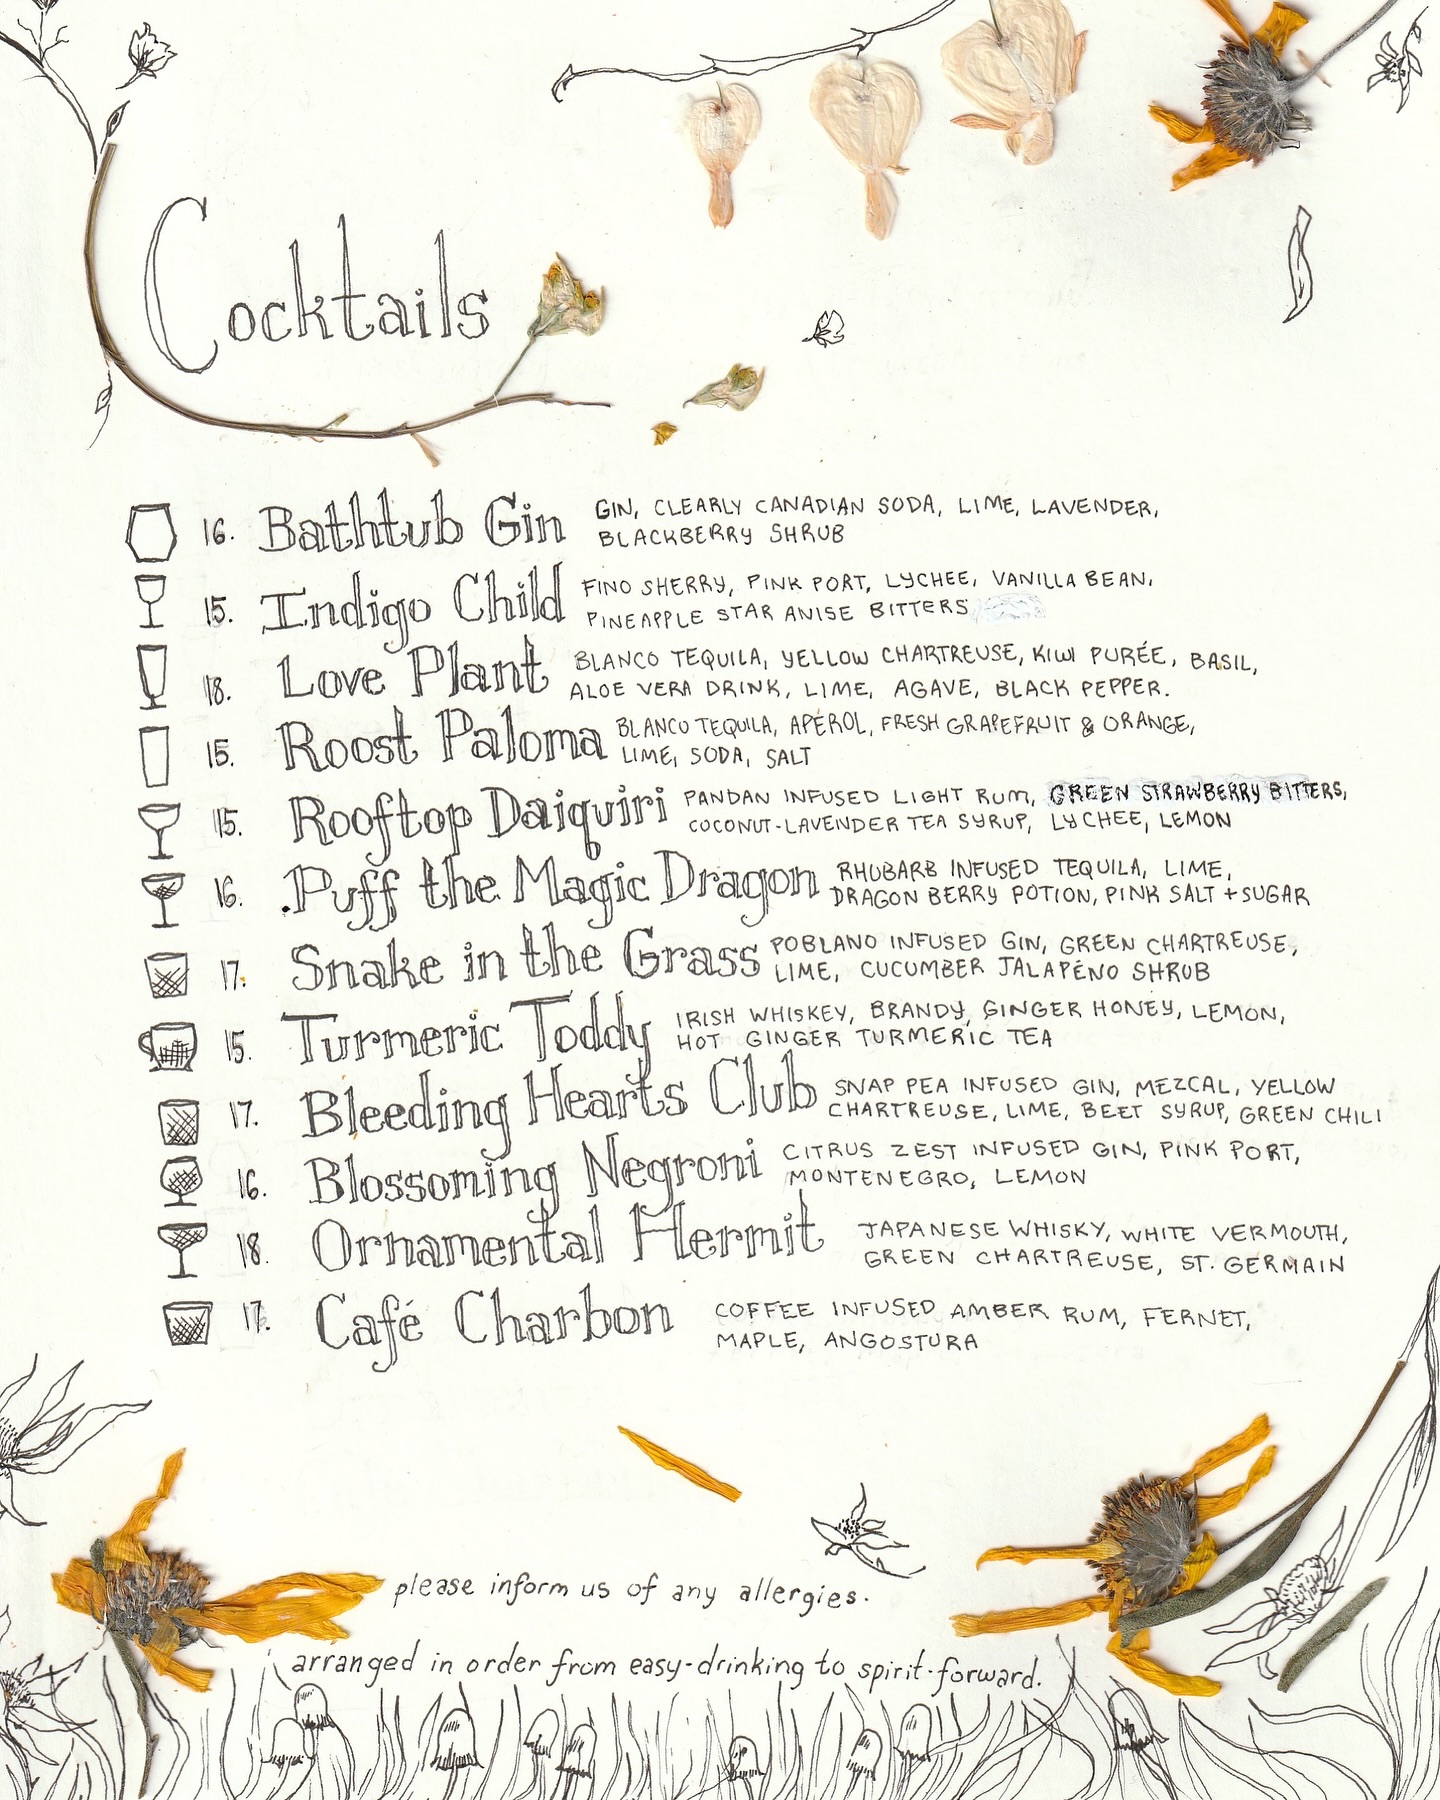 Cocktails
16. Bathtub Gin GIN, CLEARLY CANADIAN SODA, LIME, LAVENDER,
BLACKBERRY SHRUB
15. Indigo Child FINO SHERRY, PINK PORT, LYCHEE, VANILLA BEAN,
PINEAPPLE STAR ANISE BITTERS
18. Love Plant BLANCO TEQUILA, YELLOW CHARTREUSE, KIWI PURÉE, BASIL,
ALOE VERA DRINK, LIME, AGAVE, BLACK PEPPER.
15. Roost Paloma BLANCO TEQUILA, APEROL, FRESH GRAPEFRUIT & ORANGE,
LIME, SODA, SALT
15. Rooftop Daiquiri PANDAN INFUSED LIGHT RUM, GREEN STRAWBERRY BITTERS,
COCONUT-LAVENDER TEA SYRUP, LYCHEE, LEMON
16. Puff the Magic Dragon RHUBARB INFUSED TEQUILA, LIME,
DRAGON BERRY POTION, PINK SALT + SUGAR
17. Snake in the Grass POBLANO INFUSED GIN, GREEN CHARTREUSE,
LIME, CUCUMBER JALAPEÑO SHRUB
15. Turmeric Toddy IRISH WHISKEY, BRANDY, GINGER HONEY, LEMON,
HOT GINGER TURMERIC TEA
17. Bleeding Hearts Club SNAP PEA INFUSED GIN, MEZCAL, YELLOW
CHARTREUSE, LIME, BEET SYRUP, GREEN CHILI
16. Blossoming Negroni CITRUS ZEST INFUSED GIN, PINK PORT,
MONTENEGRO, LEMON
18. Ornamental Hermit JAPANESE WHISKY, WHITE VERMOUTH,
GREEN CHARTREUSE, ST. GERMAIN
17. Café Charbon COFFEE INFUSED AMBER RUM, FERNET,
MAPLE, ANGOSTURA
please inform us of any allergies.
arranged in order from easy-drinking to spirit-forward.